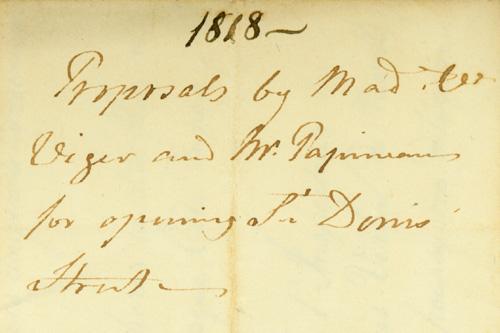 1818 —
Proposals by Mad. Ve.
Viger and Mr. Papineau
for opening St Denis
Street —